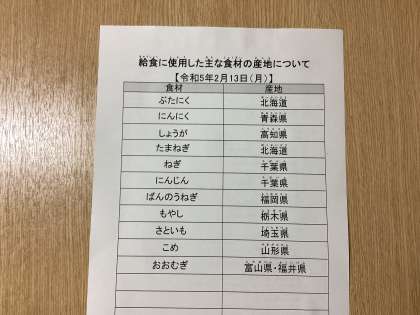 給食に使用した主な食材の産地について
【令和5年2月13日(月)】
食材 産地
ぶたにく 北海道
にんにく 青森県
しょうが 高知県
たまねぎ 北海道
ねぎ 千葉県
にんじん 千葉県
ばんのうねぎ 福岡県
もやし 栃木県
さといも 埼玉県
こめ 山形県
おおむぎ 富山県・福井県